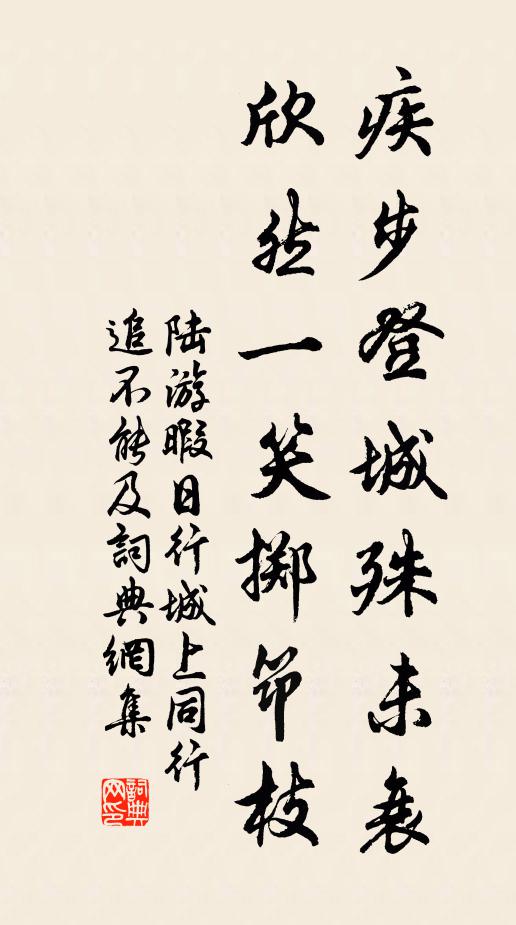 疾步登城殊未衰
欣然一笑掷笻枝
陆游暇日行城上同行
追不能及詞典網集
詞典网印